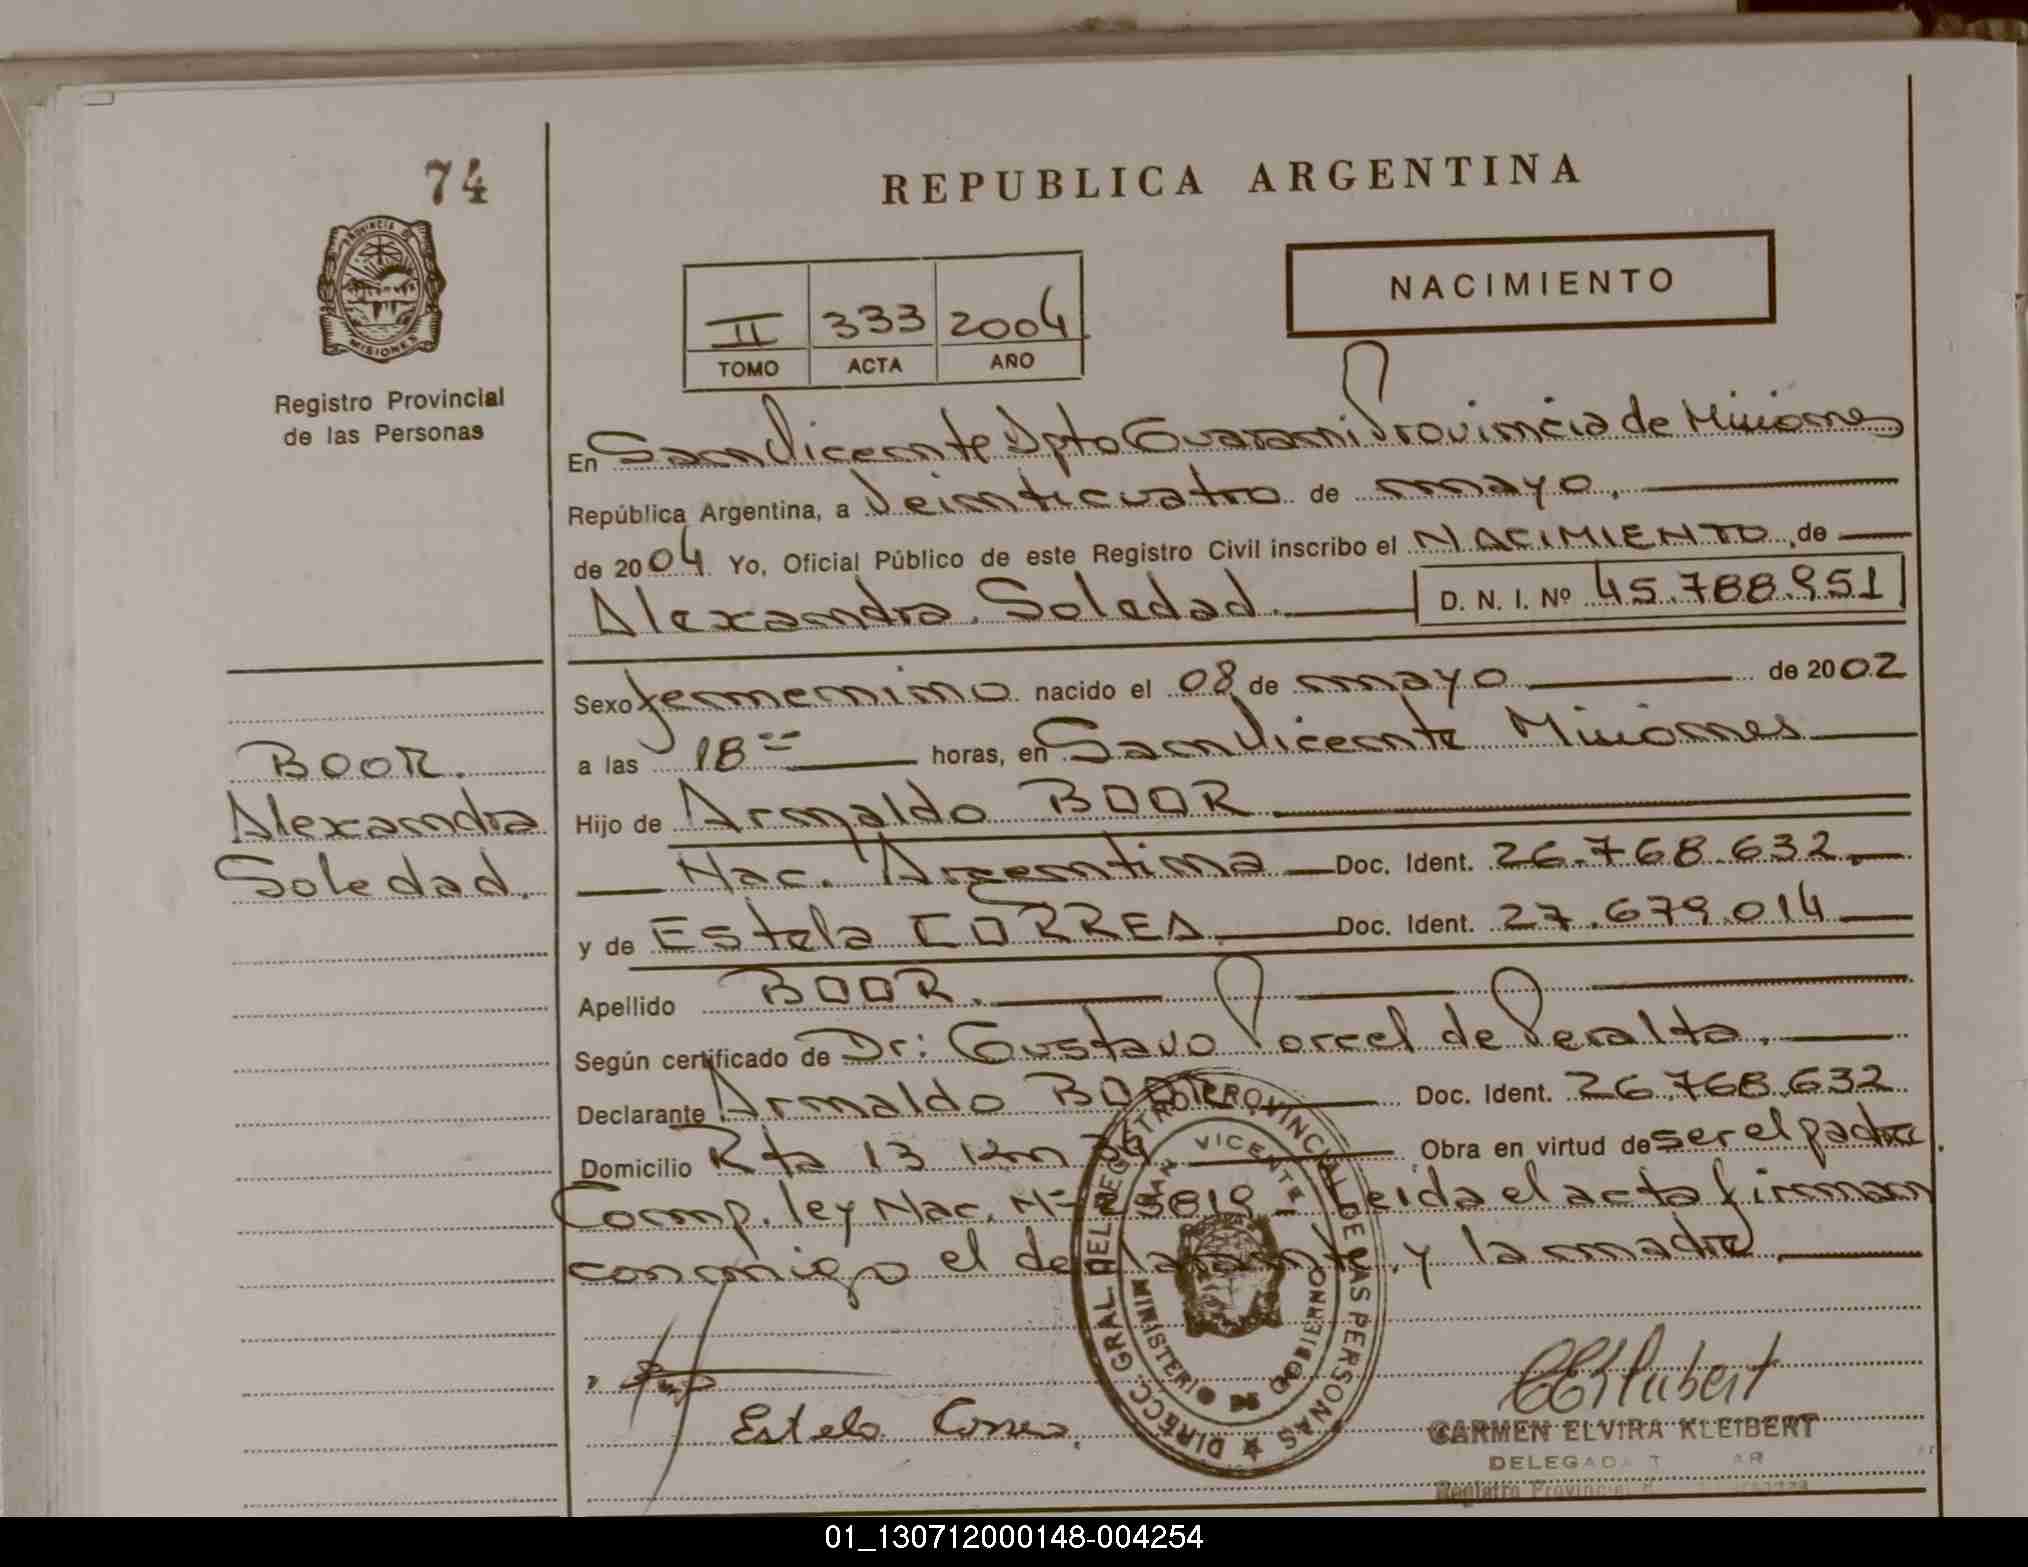 74
PROVINCIA DE
MISIONES
Registro Provincial
de las Personas
BOOR.
Alexandra
Soledad.
REPUBLICA ARGENTINA
NACIMIENTO
II 333 2004
TOMO ACTA AÑO
En San Vicente Dpto Guarani Provincia de Misiones
República Argentina, a Veinticuatro de mayo,
de 2004. Yo, Oficial Público de este Registro Civil inscribo el NACIMIENTO, de
Alexandra Soledad. D. N. I. Nº 45.788.951
Sexo femenino nacido el 08 de mayo de 2002
a las 18 horas, en San Vicente Misiones
Hijo de Arnaldo BOOR
Nac. Argentina Doc. Ident. 26.768.632.
y de Estela CORREA. Doc. Ident. 27.679.014
Apellido BOOR.
Según certificado de Dr: Gustavo Porcel de Peralta.
Declarante Arnaldo BOOR Doc. Ident. 26.768.632
Domicilio Rta 13 km 34 Obra en virtud de ser el padre.
Comp. ley Nac. Nº 25819 - Leida el acta firman
conmigo el declarante y la madre.
DIRECC. GRAL DEL REGISTRO PROVINCIAL DE LAS PERSONAS
SAN VICENTE
MINISTERIO DE GOBIERNO
Estela Correa.
CEKleibert
CARMEN ELVIRA KLEIBERT
DELEGADA
Registro Provincial
01_130712000148-004254